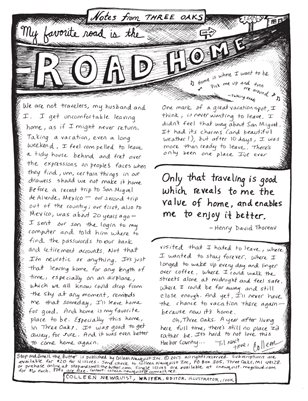 Notes from THREE OAKS
My favorite road is the
ROAD HOME
♪ Home is where I want to be
Pick me up and turn
me around ♪
- Talking Heads
We are not travelers, my husband and
I. I get uncomfortable leaving
home, as if I might never return.
Taking a vacation, even a long
weekend, I feel compelled to leave
a tidy house behind, and fret over
the expressions on people's faces when
they find, um, certain things in our
drawers should we not make it home.
Before a recent trip to San Miguel
de Allende, Mexico — our second trip
out of the country; our first, also to
Mexico, was about 20 years ago —
I sent our son the login to my
computer and told him where to
find the passwords to our bank
and retirement accounts. Not that
I'm neurotic or anything. It's just
that leaving home, for any length of
time, especially on an airplane,
which we all know could drop from
the sky at any moment, reminds
me that someday, I'll leave home
for good. And home is my favorite
place to be. Especially this home,
in Three Oaks. It was good to get
away, for sure. And it was even better
to come home again.
One mark of a great vacation spot, I
think, is never wanting to leave. I
didn't feel that way about San Miguel.
It had its charms (and beautiful
weather!), but after 10 days, I was
more than ready to leave. There's
only been one place I've ever
Only that traveling is good
which reveals to me the
value of home, and enables
me to enjoy it better.
- Henry David Thoreau
visited that I hated to leave, where
I wanted to stay forever, where I
longed to wake up every day and linger
over coffee, where I could walk the
streets alone at midnight and feel safe,
where I could be far away and still
close enough. And yet, I'll never have
the chance to vacation there again,
because now it's home.
Oh, Three Oaks. A year after living
here full time, there's still no place I'd
rather be. It's hard to not love this
Harbor Country...
'Til next
time, Colleen
COLLEEN NEWQUIST, WRITER, EDITOR, ILLUSTRATOR,